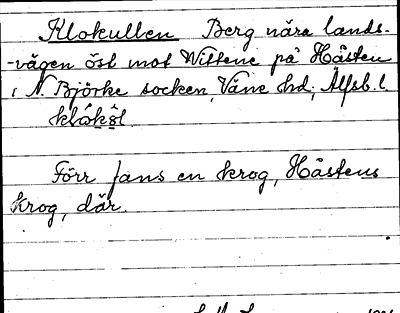 Klokullen Berg nära lands-
-vägen öst mot Wittene på Håsten
i N. Björke socken, Väne hd; Älfsb. l.
klåkö̂l.
Förr fans en krog, Håstens
krog, där.